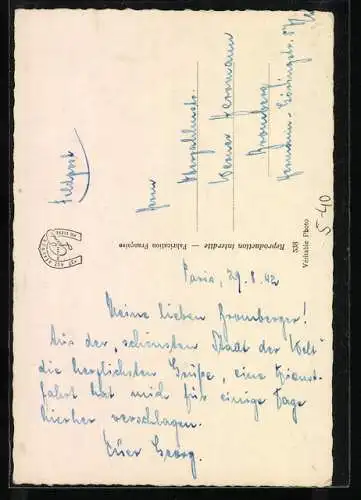 Feldpost
Herrn
Werner Herrmann
Bromberg
Hermann-Göringstr.
5-40
538
Véritable Photo
Reproduction interdite — Fabrication Française
Paris, 29.8.42
Meine lieben Bromberger!
Aus der „schönsten Stadt der Welt“
die herzlichsten Grüße, eine Dienst-
fahrt hat mich für einige Tage
hierher verschlagen.
Euer Georg.